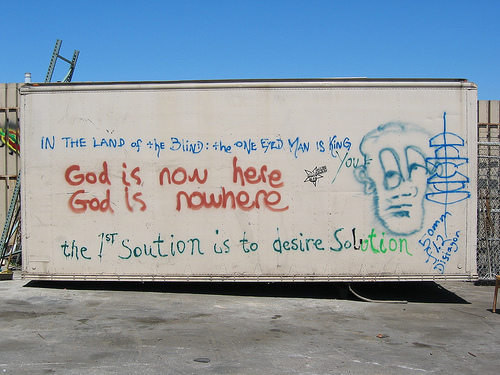 IN THE LAND of the BlinD: the ONE EYED MAN IS KING
You
God is now here
God is nowhere
the 1ST Soution is to desire Solution
50mm
f1.2